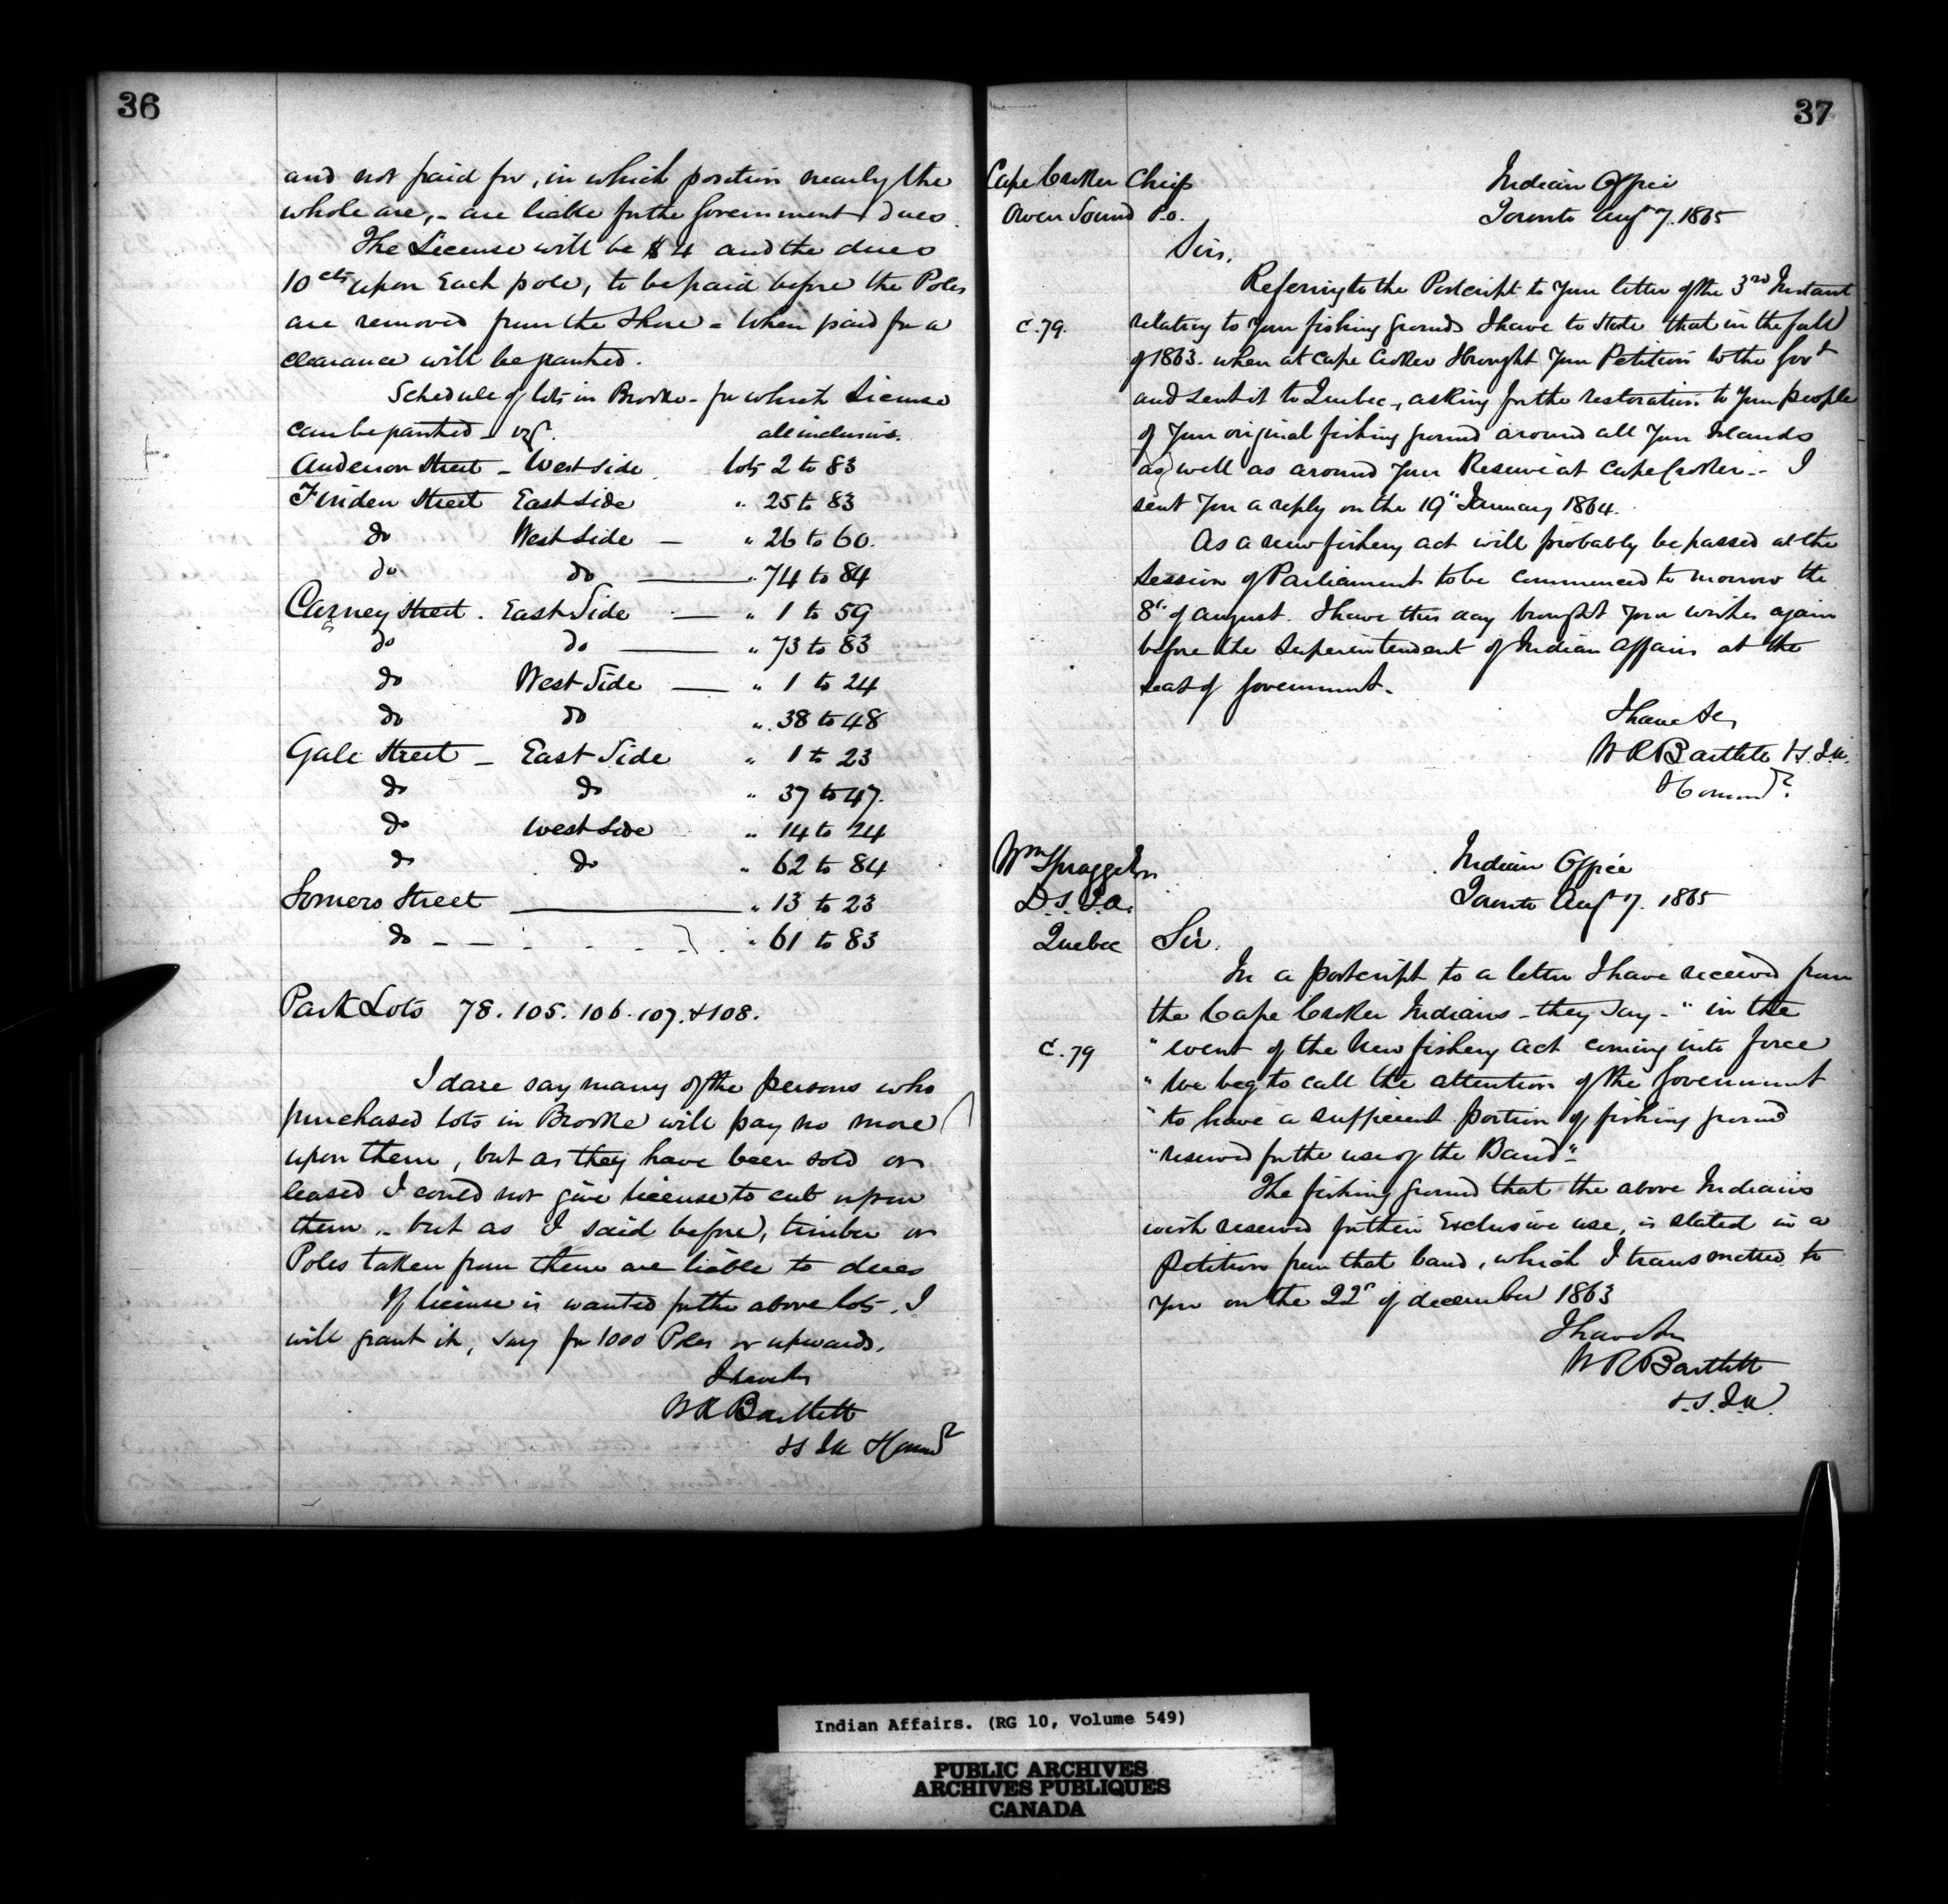 36
and not paid for, in which position nearly the
whole are, - are liable for the Government dues.
The License will be $4 and the dues
10 cts upon Each pole, to be paid before the Poles
are removed from the Shore - When paid for a
clearance will be granted.
Schedule of lots in Brooke - for which License
can be granted - viz.
all inclusive.
Anderson Street - West side lots 2 to 83
Finden Street East side " 25 to 83
do West Side - " 26 to 60.
do do " 74 to 84
Carney Street. East Side - " 1 to 59
do do " 73 to 83
do West Side - " 1 to 24
do do " 38 to 48
Gale Street - East Side " 1 to 23
do do " 37 to 47.
do West Side " 14 to 24
do do " 62 to 84
Somers Street " 13 to 23
do - - - - - " 61 to 83
Park Lots 78. 105. 106. 107. & 108.
I dare say many of the persons who
purchased lots in Brooke will pay no more
upon them, but as they have been sold or
leased I could not give license to cut upon
them - but as I said before, timber or
Poles taken from them are liable to dues
If license is wanted for the above lots, I
will grant it, say for 1000 Poles or upwards.
I have &c
W R Bartlett
37
Cape Croker Chiefs
Owen Sound P.O.
Indian Office
Toronto Augt 7. 1865
Sirs,
Referring to the Postcript to your letter of the 3rd Instant
C.79. relating to your fishing grounds I have to state that in the fall
of 1863. when at Cape Croker I brought your Petition to the Govt
and sent it to Quebec, asking for the restoration to your people
of your original fishing ground around all your Islands
as well as around your Reserve at Cape Croker - I
sent you a reply on the 19" January 1864.
As a new fishery act will probably be passed at the
Session of Parliament to be commenced to morrow the
8th of august. I have this day brought your wishes again
before the Superintendent of Indian Affairs at the
seat of Government.
I have &c
W R Bartlett
Wm Spragge Esqr
D.S.I.A.
Quebec
Indian Office
Toronto Augt 7. 1865
Sir.
In a postcript to a letter I have received from
the Cape Croker Indians - they say - " in the
C.79 " event of the New fishery Act coming into force
" We beg to call the attention of the Government
" to have a sufficient portion of fishing ground
" reserved for the use of the Band" -
The fishing ground that the above Indians
wish reserved for their Exclusive use, is stated in a
Petition from that band, which I transmitted to
you on the 22d of december 1863
I have &c
W R Bartlett
Indian Affairs. (RG 10, Volume 549)
PUBLIC ARCHIVES
ARCHIVES PUBLIQUES
CANADA